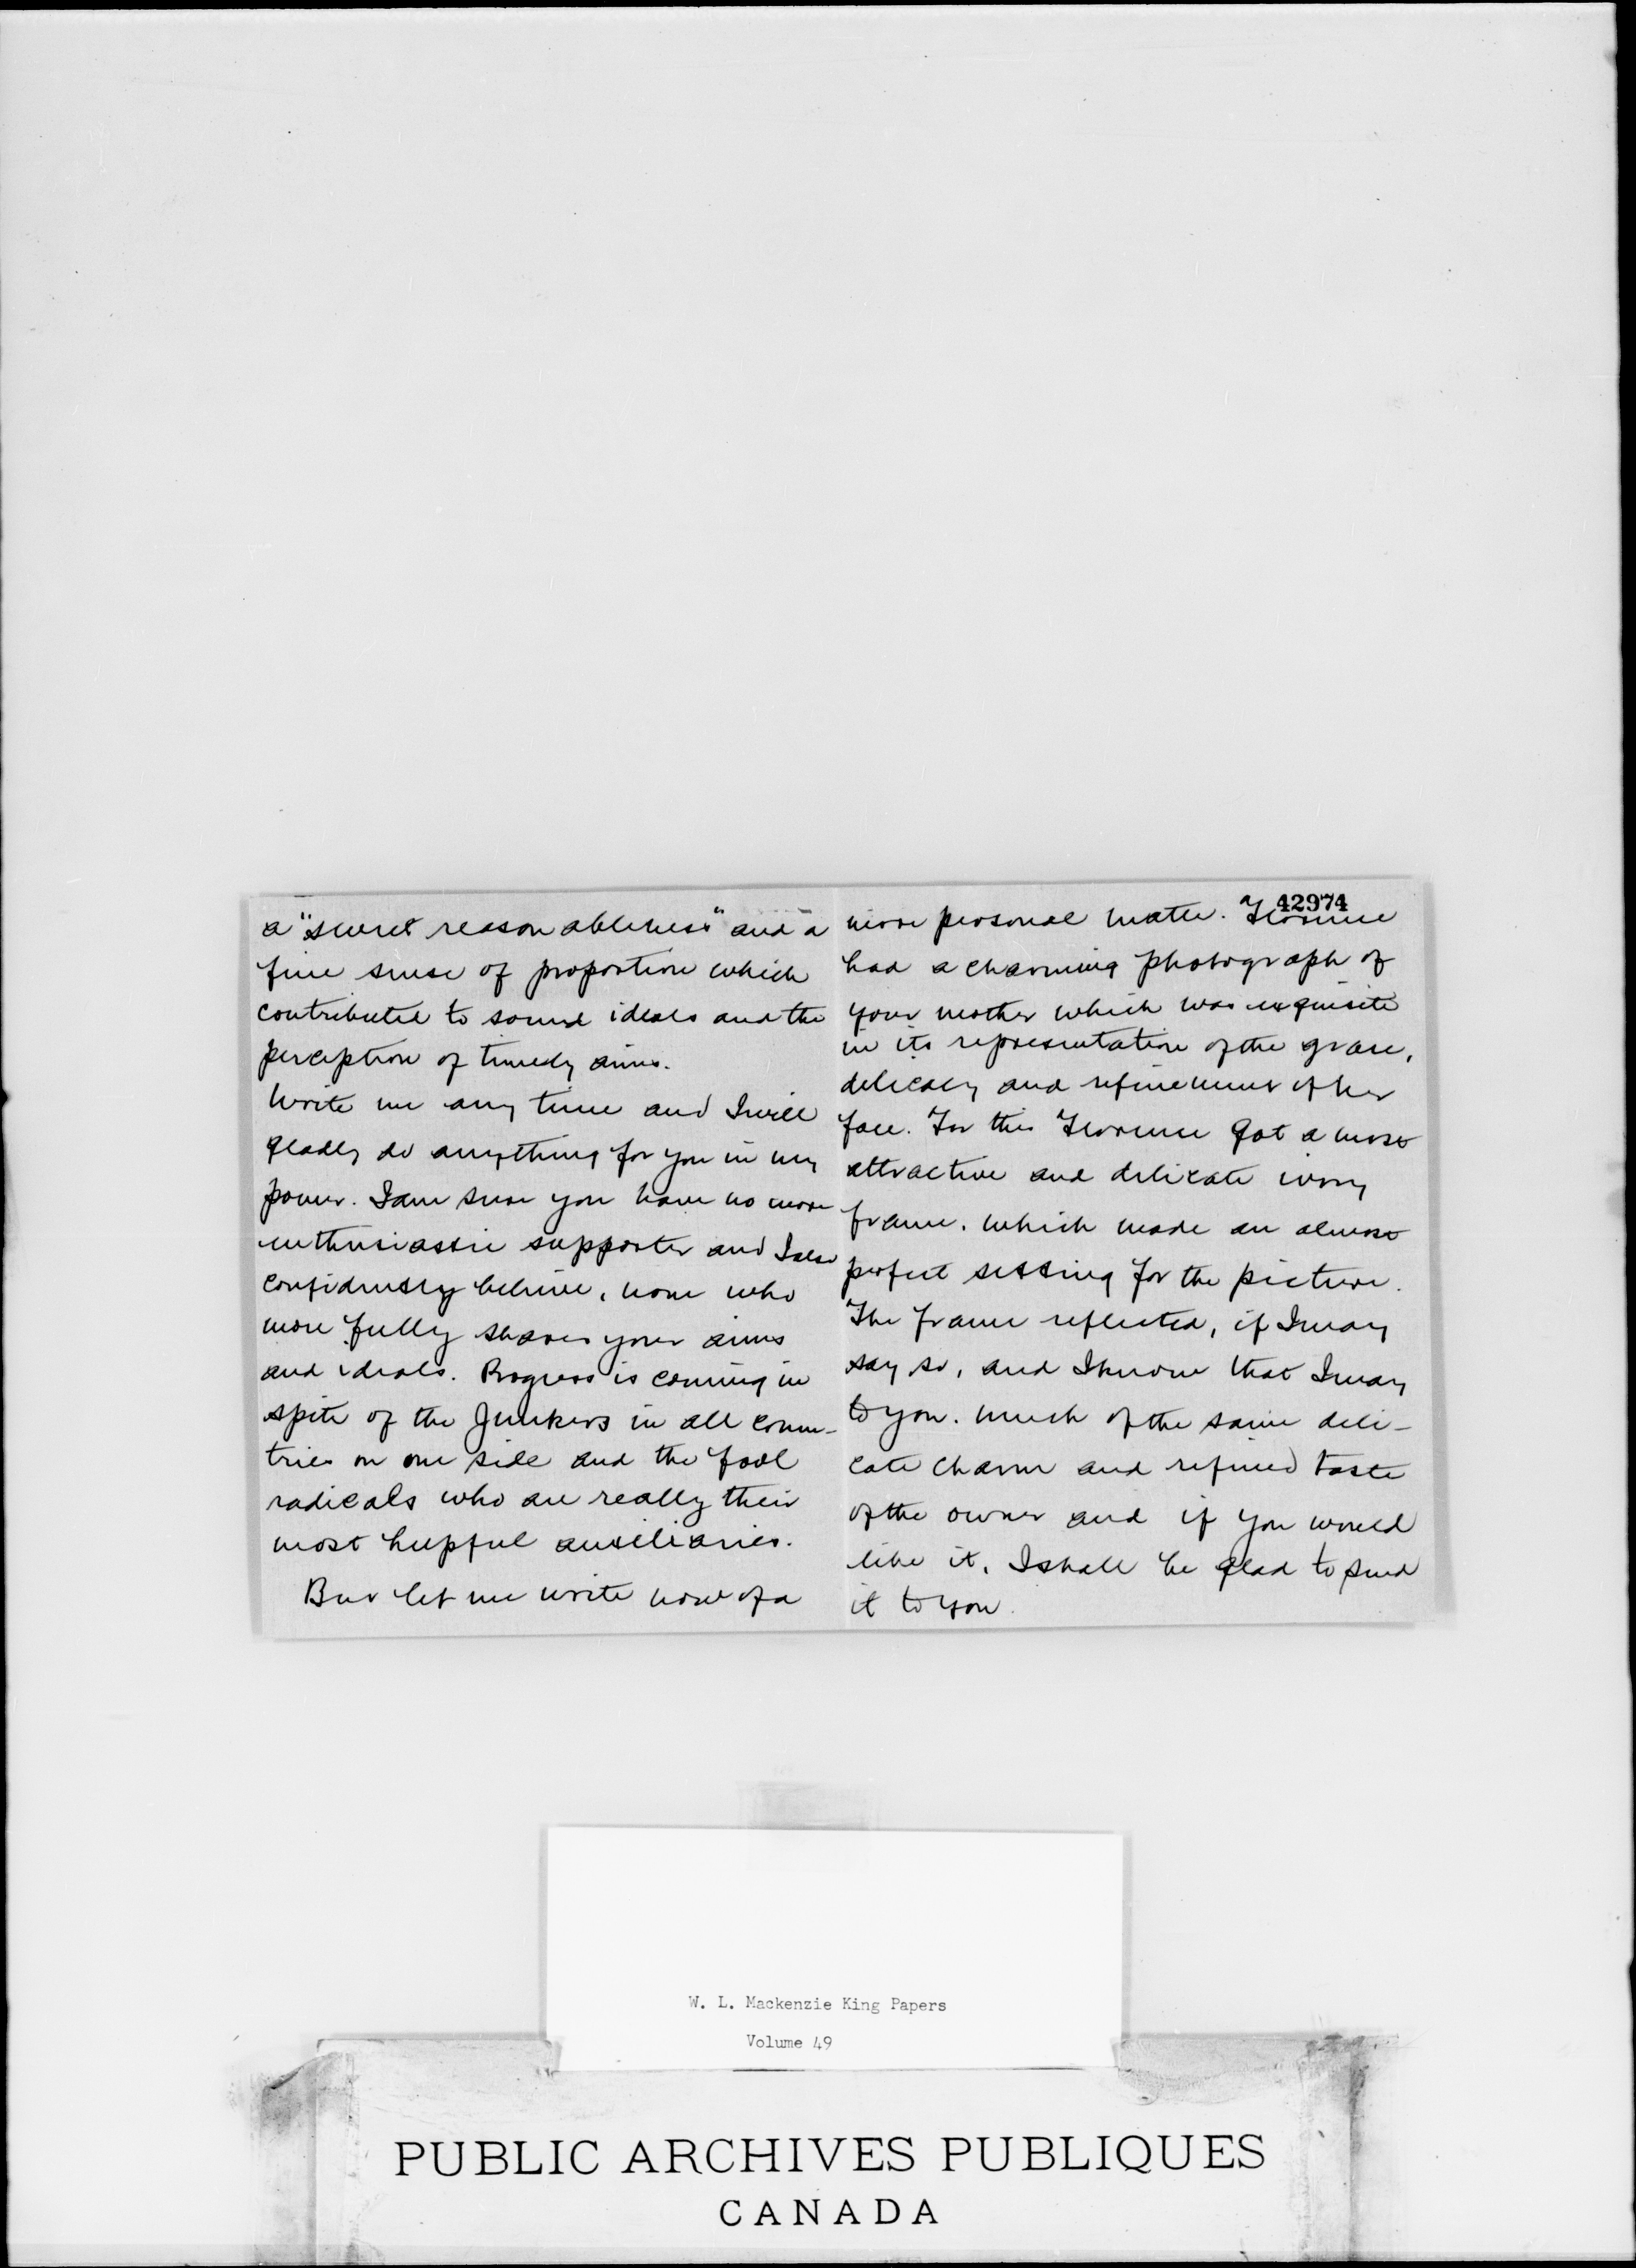 42974
a "sweet reasonableness" and a
fine sense of proportion which
contributed to sound ideals and the
perception of timely aims.
Write me any time and I will
gladly do anything for you in my
power. I am sure you have no more
enthusiastic supporter and I also
confidently believe, none who
more fully shares your aims
and ideals. Progress is coming in
spite of the Junkers in all coun-
tries on one side and the fool
radicals who are really their
most helpful auxiliaries.
But let me write now of a
more personal matter. Florence
had a charming photograph of
your mother which was exquisite
in its representation of the grace,
delicacy and refinement of her
face. For this Florence got a most
attractive and delicate ivory
frame, which made an almost
perfect setting for the picture.
The frame reflected, if I may
say so, and I know that I may
to you, much of the same deli-
cate charm and refined taste
of the owner and if you would
like it, I shall be glad to send
it to you.
W. L. Mackenzie King Papers
Volume 49
PUBLIC ARCHIVES PUBLIQUES
CANADA